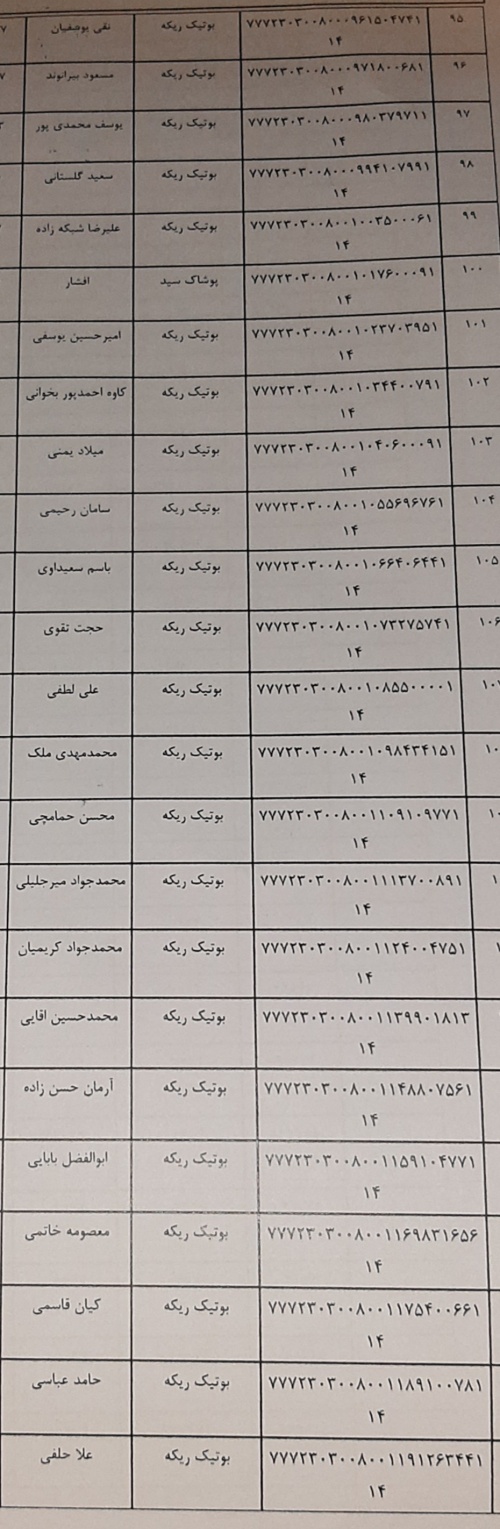 ۹۵ ۷۷۷۲۳۰۳۰۰۸۰۰۰۹۶۱۵۰۴۷۴۱ بوتیک ریکه نقی یوصفیان
۱۴
۹۶ ۷۷۷۲۳۰۳۰۰۸۰۰۰۹۷۱۸۰۰۶۸۱ بوتیک ریکه مسعود بیرانوند
۱۴
۹۷ ۷۷۷۲۳۰۳۰۰۸۰۰۰۹۸۰۳۷۹۷۱۱ بوتیک ریکه یوسف محمدی پور
۱۴
۹۸ ۷۷۷۲۳۰۳۰۰۸۰۰۰۹۹۴۱۰۷۹۹۱ بوتیک ریکه سعید گلستانی
۱۴
۹۹ ۷۷۷۲۳۰۳۰۰۸۰۰۱۰۰۳۵۰۰۰۶۱ بوتیک ریکه علیرضا شبکه زاده
۱۴
۱۰۰ ۷۷۷۲۳۰۳۰۰۸۰۰۱۰۱۷۶۰۰۰۹۱ پوشاک سید افشار
۱۴
۱۰۱ ۷۷۷۲۳۰۳۰۰۸۰۰۱۰۲۳۷۰۳۹۵۱ بوتیک ریکه امیرحسین یوسفی
۱۴
۱۰۲ ۷۷۷۲۳۰۳۰۰۸۰۰۱۰۳۴۴۰۰۷۹۱ بوتیک ریکه کاوه احمدپور بخوانی
۱۴
۱۰۳ ۷۷۷۲۳۰۳۰۰۸۰۰۱۰۴۰۶۰۰۰۹۱ بوتیک ریکه میلاد یمنی
۱۴
۱۰۴ ۷۷۷۲۳۰۳۰۰۸۰۰۱۰۵۵۶۹۶۷۶۱ بوتیک ریکه سامان رحیمی
۱۴
۱۰۵ ۷۷۷۲۳۰۳۰۰۸۰۰۱۰۶۶۴۰۶۴۴۱ بوتیک ریکه باسم سعیداوی
۱۴
۱۰۶ ۷۷۷۲۳۰۳۰۰۸۰۰۱۰۷۳۲۷۵۷۴۱ بوتیک ریکه حجت تقوی
۱۴
۷۷۷۲۳۰۳۰۰۸۰۰۱۰۸۵۵۰۰۰۰۱ بوتیک ریکه علی لطفی
۱۴
۷۷۷۲۳۰۳۰۰۸۰۰۱۰۹۸۴۳۴۱۵۱ بوتیک ریکه محمدمهدی ملک
۱۴
۷۷۷۲۳۰۳۰۰۸۰۰۱۱۰۹۱۰۹۷۷۱ بوتیک ریکه محسن حمامچی
۱۴
۷۷۷۲۳۰۳۰۰۸۰۰۱۱۱۳۷۰۰۸۹۱ بوتیک ریکه محمدجواد میرجلیلی
۱۴
۷۷۷۲۳۰۳۰۰۸۰۰۱۱۲۴۰۰۴۷۵۱ بوتیک ریکه محمدجواد کریمیان
۱۴
۷۷۷۲۳۰۳۰۰۸۰۰۱۱۳۹۹۰۱۸۱۳ بوتیک ریکه محمدحسین اقایی
۱۴
۷۷۷۲۳۰۳۰۰۸۰۰۱۱۴۸۸۰۷۵۶۱ بوتیک ریکه آرمان حسن زاده
۱۴
۷۷۷۲۳۰۳۰۰۸۰۰۱۱۵۹۱۰۴۷۷۱ بوتیک ریکه ابوالفضل بابایی
۱۴
۷۷۷۲۳۰۳۰۰۸۰۰۱۱۶۹۸۳۱۶۵۶ بوتیک ریکه معصومه خاتمی
۱۴
۷۷۷۲۳۰۳۰۰۸۰۰۱۱۷۵۴۰۰۶۶۱ بوتیک ریکه کیان قاسمی
۱۴
۷۷۷۲۳۰۳۰۰۸۰۰۱۱۸۹۱۰۰۷۸۱ بوتیک ریکه حامد عباسی
۱۴
۷۷۷۲۳۰۳۰۰۸۰۰۱۱۹۱۲۶۳۴۴۱ بوتیک ریکه علا حلفی
۱۴